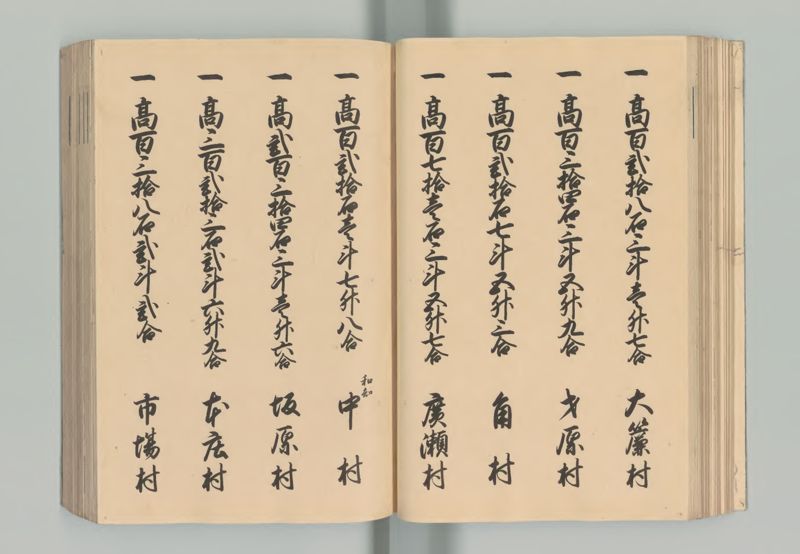 一 高百弐拾八石三斗壱升七合 大簾村
一 高百三拾四石三斗五升九合 才原村
一 高百弐拾石七斗五升三合 角村
一 高百七拾壱石三斗五升七合 廣瀬村
一 高百弐拾石壱斗七升八合 和知 中村
一 高弐百三拾四石三斗壱升六合 坂原村
一 高三百弐拾三石弐斗六升九合 本庄村
一 高百三拾八石弐斗弐合 市場村